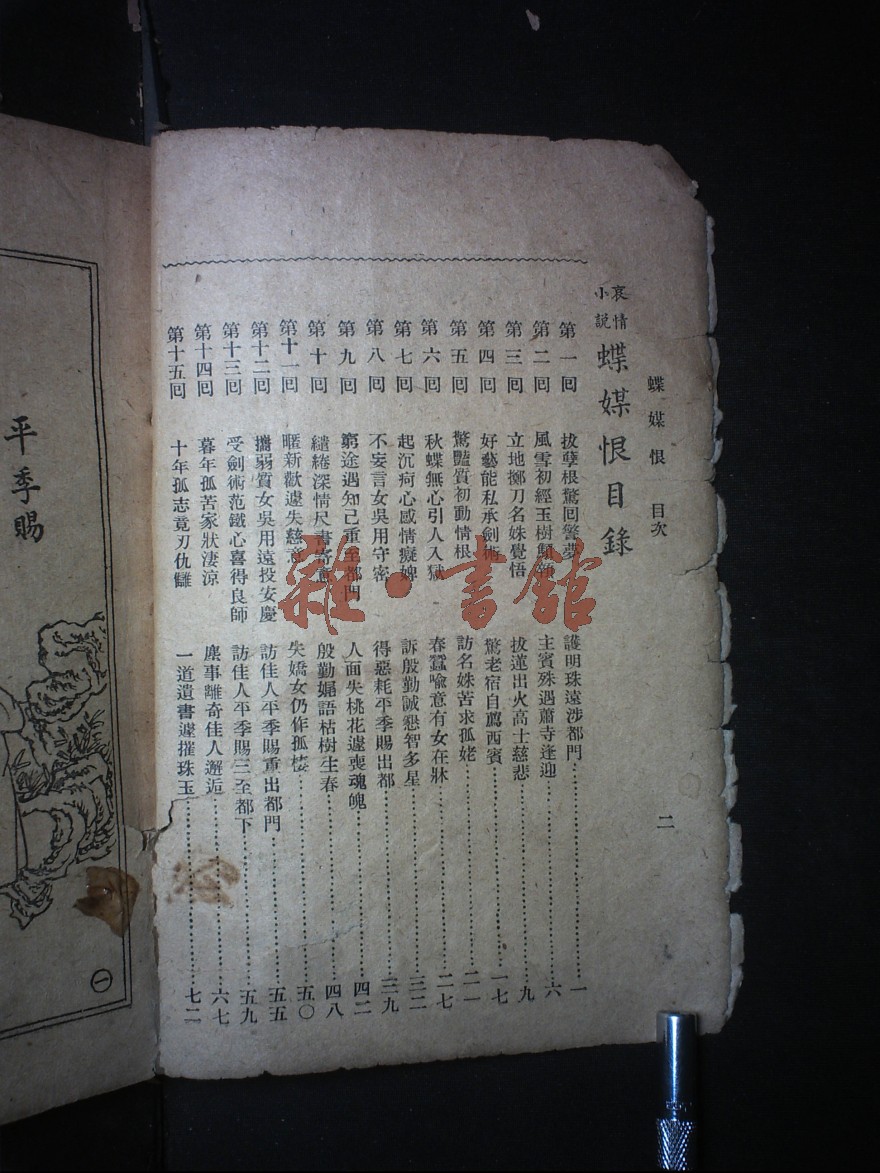 蝶媒恨 目次 二
哀情小說 蝶媒恨目錄
第一回 拔孽根驚回警夢 護明珠遠涉都門 一
第二回 風雪初經玉樹 主賓殊遇蕭寺逢迎 六
第三回 立地擲刀名姝覺悟 拔蓮出火高士慈悲 九
第四回 好藝能私承劍術 驚老宿自薦西賓 一七
第五回 驚豔質初動情根 訪名姝苦求孤姥 二一
第六回 秋蝶無心引人入獄 春蠶喩意有女在牀 二七
第七回 起沉疴心感情癡婢 訴殷勤誠懇智多星 三二
第八回 不妄言女吳用守密 得惡耗平季賜出都 三九
第九回 窮途遇知己重至都門 人面失桃花遽喪魂魄 四二
第十回 繾綣深情尺書寄意 殷勤婣語枯樹生春 四八
第十一回 暱新歡遽失慈意 失嬌女仍作孤棲 五〇
第十二回 攜弱質女吳用遠投安慶 訪佳人平季賜重出都門 五五
第十三回 受劍術范鐵心喜得良師 訪佳人平季賜三至都下 五九
第十四回 暮年孤苦家狀淒涼 塵事離奇佳人邂逅 六七
第十五回 十年孤志竟刃仇讎 一道遺書遽摧珠玉 七二
平季賜
一
雜·書館